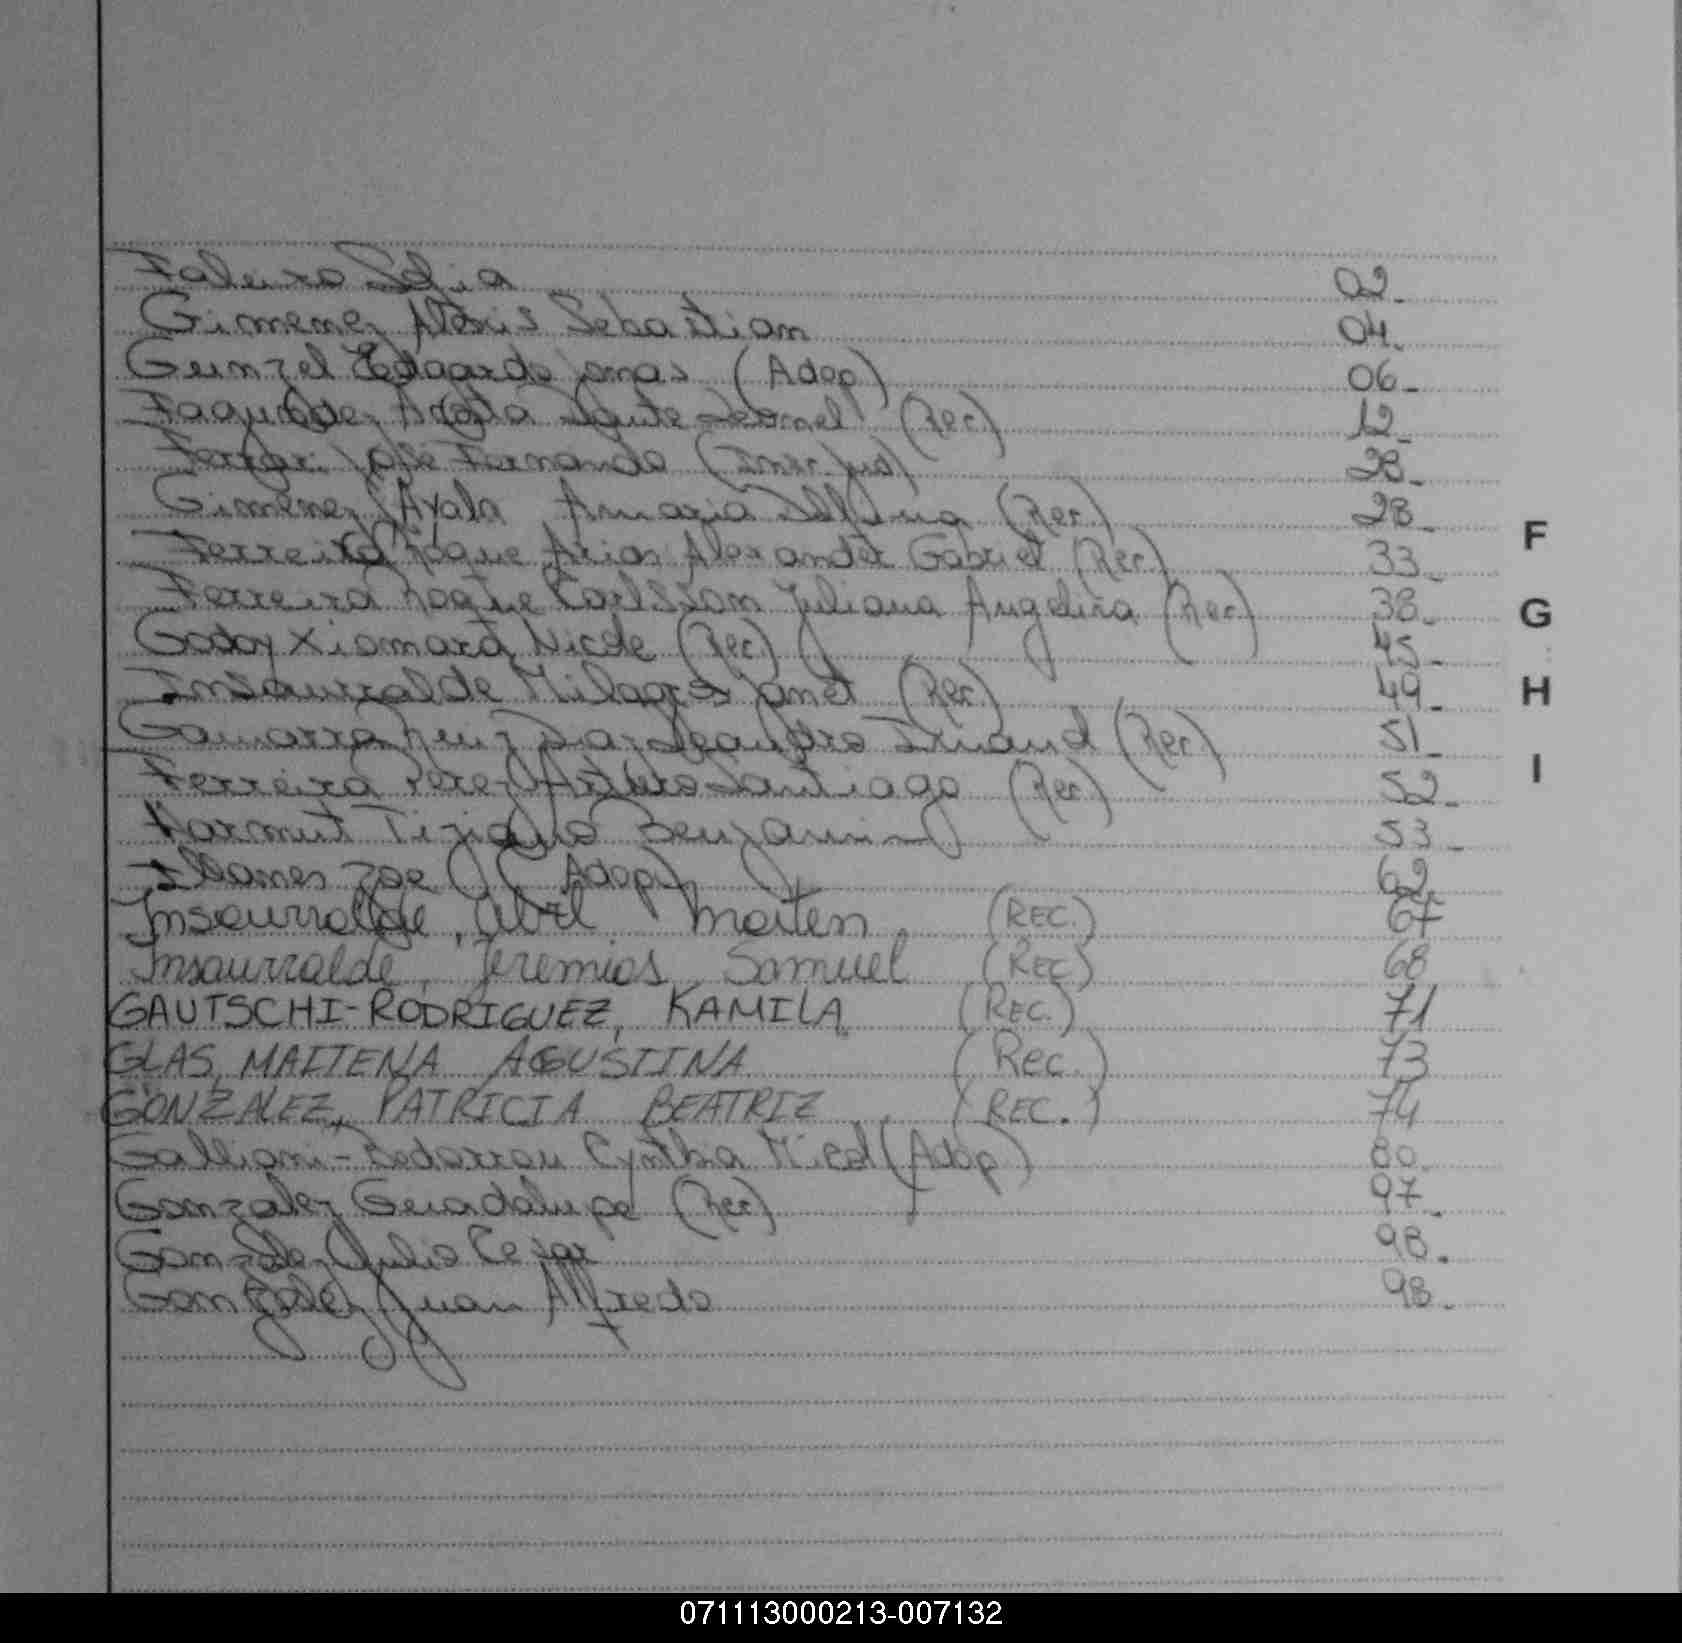 Faleiro Sofia 02-
Gimenez Alexis Sebastian 04-
Geinzel Edgardo Jonas (Adop) 06-
Fagundez Leonel (Rec) 12-
Ferrari José Fernando 28-
Gimenez Ayala Amaria Delfina (Rec) 28-
Ferreira Roque Arian Alexander Gabriel (Rec) 33-
Ferreira Roque Juliana Angelina (Rec) 38-
Godoy Xiomara Nicole (Rec) 45-
Insaurralde Milagros Janet (Rec) 49-
Gamarra (Rec) 51-
Ferreira Perez Arturo Santiago (Rec) 52-
Harmut Tiziano Benjamin 53-
Illanes Zoe (Adop) 62-
Insaurralde, Abril Maiten (REC.) 67
Insaurralde, Jeremias Samuel (REC) 68
GAUTSCHI-RODRIGUEZ, KAMILA (REC.) 71
GLAS, MAITENA AGUSTINA (Rec.) 73
GONZALEZ, PATRICIA BEATRIZ (REC.) 74
Galliani- Cyntha Micol (Adop) 80-
Gonzalez Guadalupe (Rec) 97-
Gonzalez Julio Cesar 98-
Gonzalez Juan Alfredo 98-
F
G
H
I
071113000213-007132